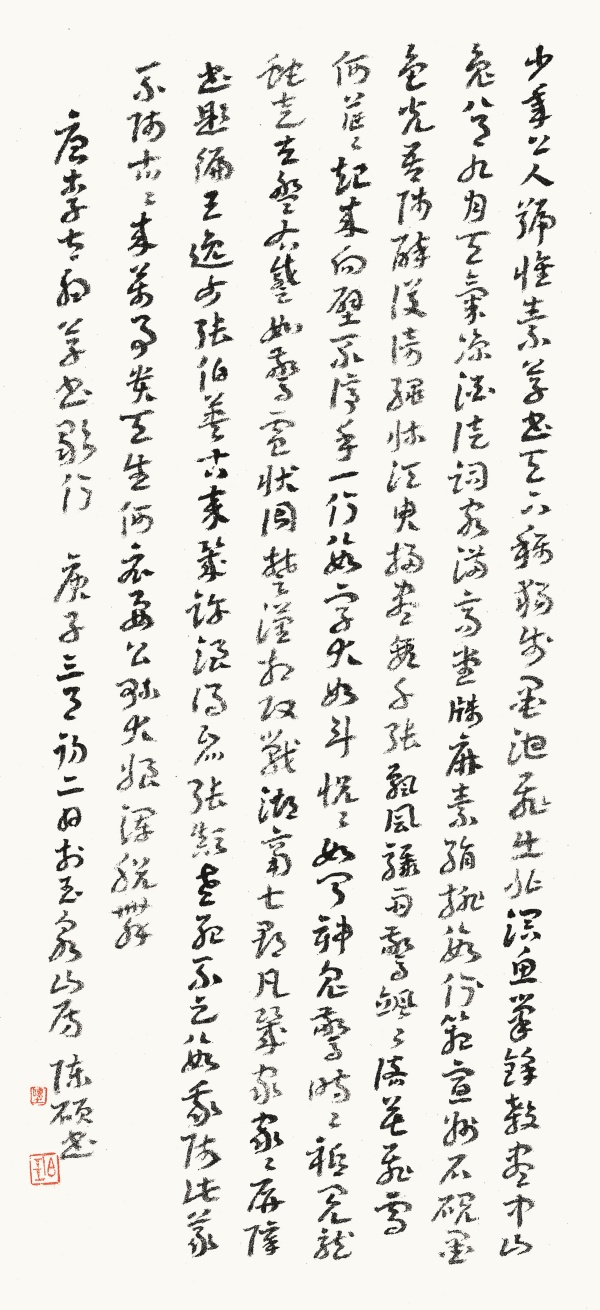 少年上人號懷素草書天下稱獨步墨池飛出北溟魚筆鋒殺盡中山
兔八月九月天氣涼酒徒詞客滿高堂牋麻素絹排數箱宣州石硯墨
色光吾師醉後倚繩牀須臾掃盡數千張飄風驟雨驚颯〻落花飛雪
何茫〻起來向壁不停手一行數字大如斗怳〻如聞神鬼驚時〻祗見龍
蛇走左盤右蹙如驚電狀同楚漢相攻戰湖南七郡凡幾家家〻屏障
書題徧王逸少張伯英古來幾許浪得名張顛老死不足數我師此義
不師古〻來萬事貴天生何必要公孫大娘渾脫舞
唐李太白草書歌行 庚子三月初二日於玉泉山房 陳碩書